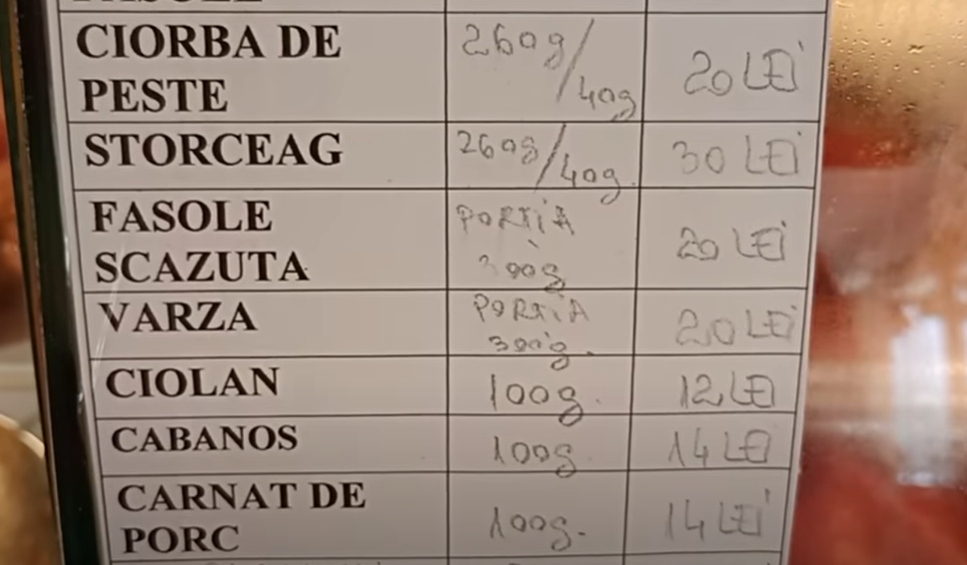 CIORBA DE PESTE 260g/40g 20 LEI
STORCEAG 260g/40g 30 LEI
FASOLE SCAZUTA PORTIA 300g 20 LEI
VARZA PORTIA 300g. 20 LEI
CIOLAN 100g. 12 LEI
CABANOS 100g 14 LEI
CARNAT DE PORC 100g. 14 LEI